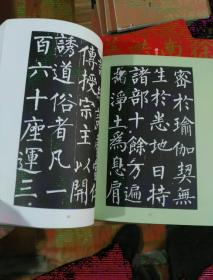 傳授宗主以開
誘道俗者凡一
百六十座運三
密於瑜伽契無
生於悉地日持
諸部十餘万遍
指淨土爲息肩